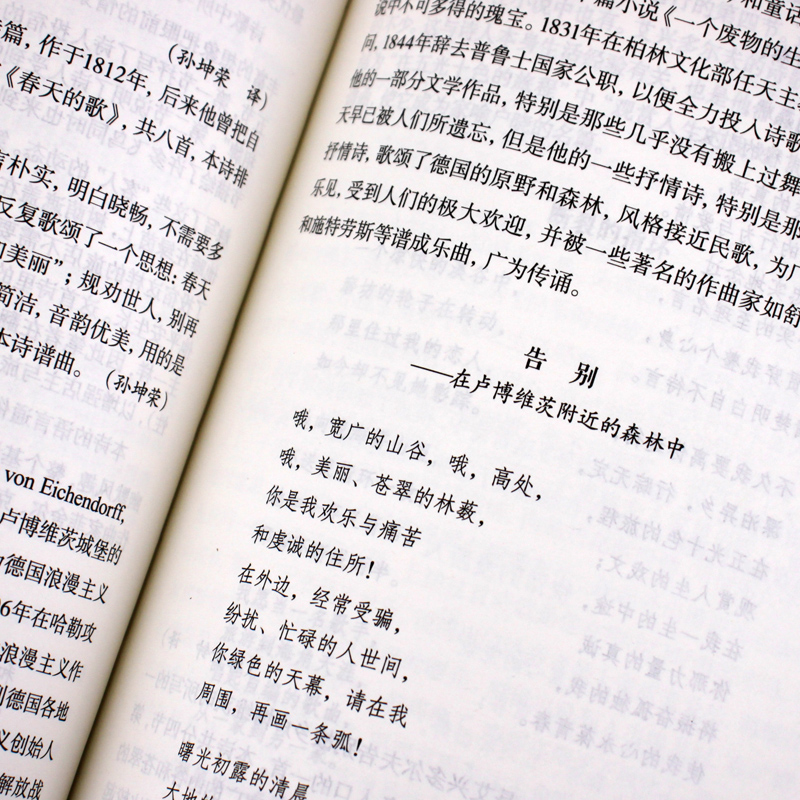 （孙坤荣 译）
篇，作于1812年，后来他曾把自
《春天的歌》，共八首，本诗排
言朴实，明白晓畅，不需要多
反复歌颂了一个思想：春天
美丽”；规劝世人，别再
简洁，音韵优美，用的是
本诗谱曲。（孙坤荣）
von Eichendorff,
卢博维茨城堡的
德国浪漫主义
6年在哈勒攻
浪漫主义作
德国各地
义创始人
解放战
篇小说《一个废物的生
说中不可多得的瑰宝。1831年在柏林文化部任天主
问，1844年辞去普鲁士国家公职，以便全力投入诗歌
他的一部分文学作品，特别是那些几乎没有搬上过舞
天早已被人们所遗忘，但是他的一些抒情诗，特别是那
抒情诗，歌颂了德国的原野和森林，风格接近民歌，为广
乐见，受到人们的极大欢迎，并被一些著名的作曲家如舒
和施特劳斯等谱成乐曲，广为传诵。
告 别
——在卢博维茨附近的森林中
哦，宽广的山谷，哦，高处，
哦，美丽、苍翠的林薮，
你是我欢乐与痛苦
和虔诚的住所！
在外边，经常受骗，
纷扰、忙碌的人世间，
你绿色的天幕，请在我
周围，再画一条弧！
曙光初露的清晨
大地